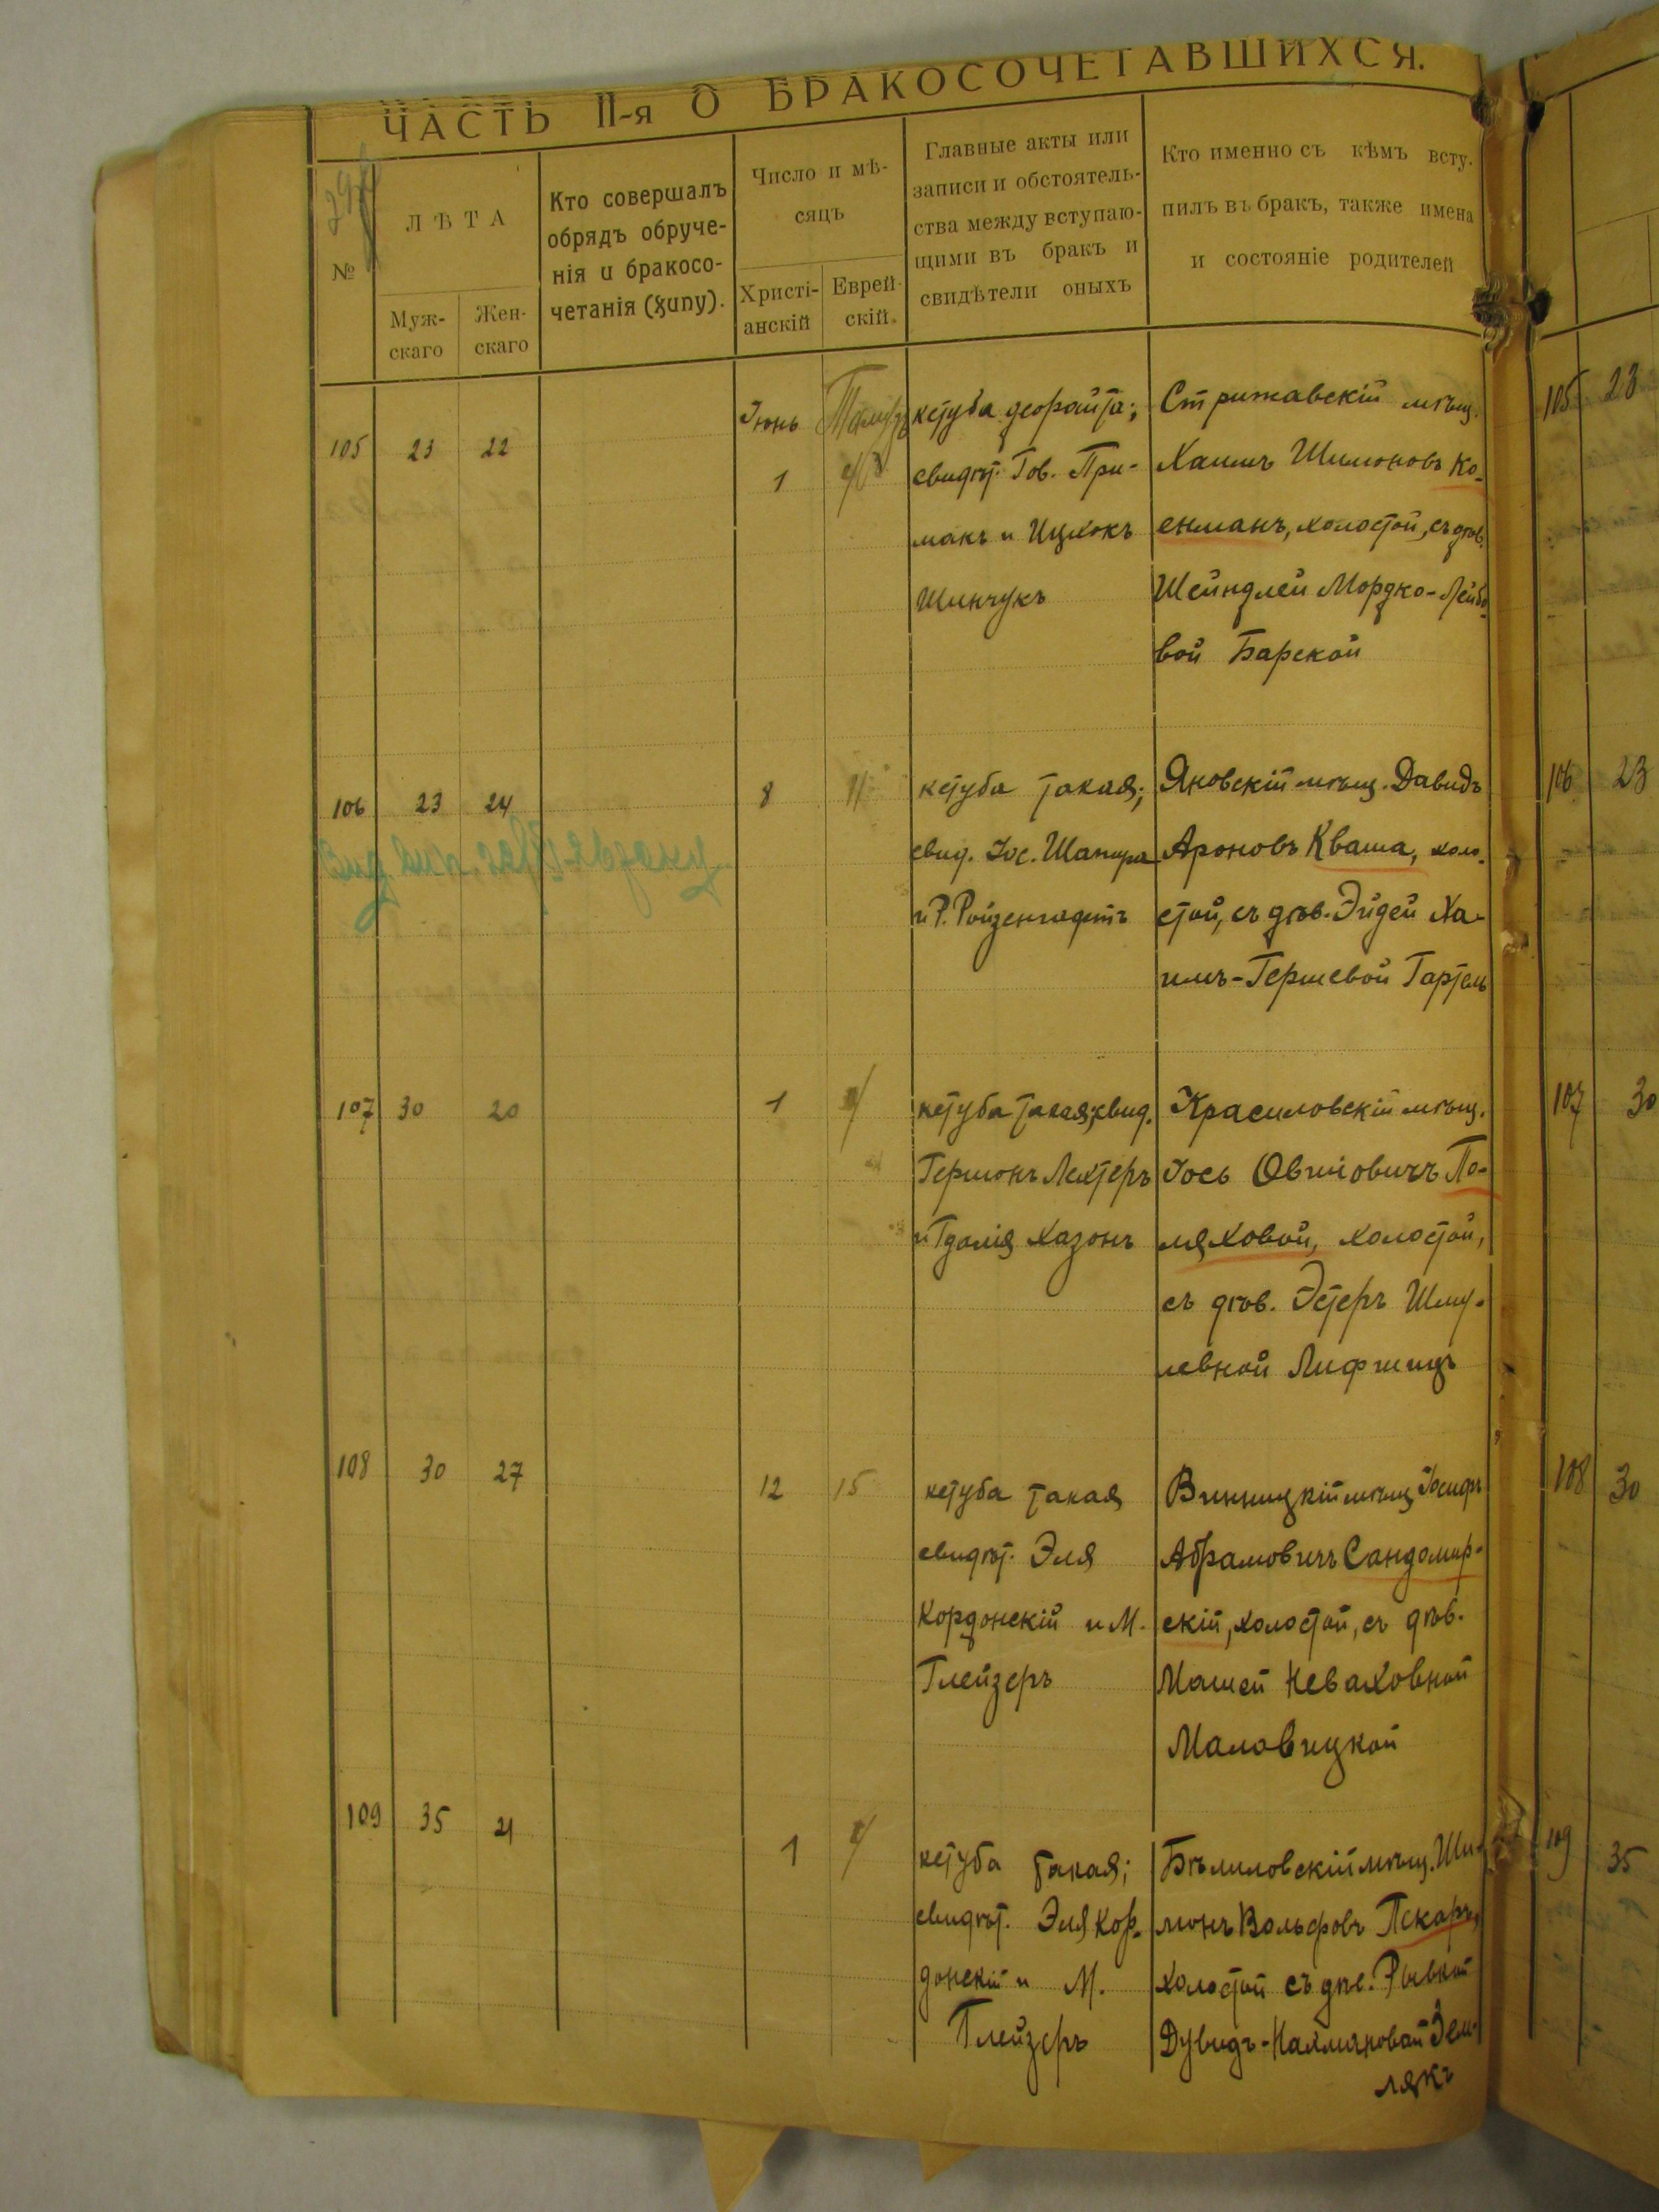 ЧАСТЬ II-я О БРАКОСОЧЕТАВШИХСЯ.
№
ЛѢТА
Муж-
скаго
Жен-
скаго
Кто совершалъ
обрядъ обруче-
нія и бракосо-
четанія (хупу).
Число и мѣ-
сяцъ
Христі-
анскій
Еврей-
скій.
Главные акты или
записи и обстоятель-
ства между вступаю-
щими въ бракъ и
свидѣтели оныхъ
Кто именно съ кѣмъ всту-
пилъ въ бракъ, также имена
и состояніе родителей
105 23 22
Іюнь
1
Тамузъ
кетуба деорайта;
свидѣт. Гов. При-
макъ и Ицхокъ
Шинчукъ
Стрижавскій мѣщ.
Хаимъ Шимоновъ Ко-
енманъ, холостой, съ дѣв.
Шейндлей Мордко-Лейбо-
вой Барской
106 23 24
8 11
кетуба такая;
свид. Іос. Шапира
и Р. Ройзенгафтъ
Яновскій мѣщ. Давидъ
Ароновъ Кваша, холо-
стой, съ дѣв. Эйдей Ха-
имъ-Гершевой Гартель
107 30 20
1
кетуба такая; свид.
Гершонъ Лехтеръ
и Гдалія Хазонъ
Красиловскій мѣщ.
Іось Овшіовичъ По-
ляховой, холостой,
съ дѣв. Эстеръ Шму-
левной Лифшицъ
108 30 27
12 15
кетуба такая
свидѣт. Эля
Кордонскій и М.
Глейзеръ
Винницкій мѣщ. Іосифъ
Абрамовичъ Сандомир-
скій, холостой, съ дѣв.
Машей Неваховной
Маловицкой
109 35 21
1
кетуба такая;
свидѣт. Эля Кор-
донскій и М.
Глейзеръ
Бѣлиловскій мѣщ. Ши-
монъ Вольфовъ Пскаръ,
холостой съ дѣв. Рывкой
Дувидъ-Нахмановой Зем-
лякъ
105 23
106 23
107 30
108 30
109 35